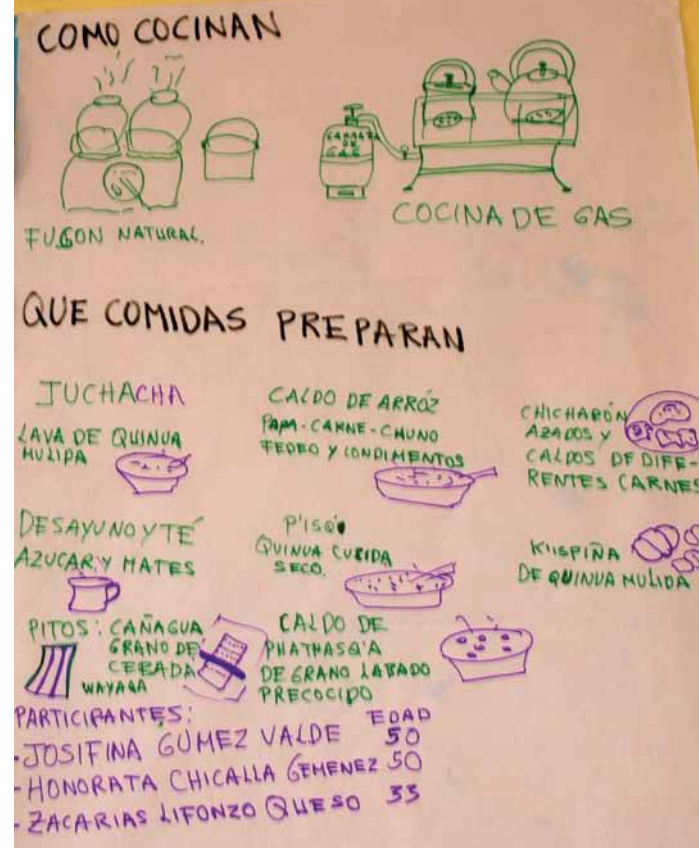 COMO COCINAN
GARRAFA
DE
GAS
FUGON NATURAL.
COCINA DE GAS
QUE COMIDAS PREPARAN
JUCHACHA
LAVA DE QUINUA
MULIDA
CALDO DE ARRÓZ
PAPA-CARNE-CHUNO
FEDEO Y CONDIMENTOS
CHICHARÓN
AZADOS Y
CALDOS DE DIFE-
RENTES CARNES
DESAYUNO Y TÉ
AZUCAR Y MATES
P'ISQ'
QUINUA CUCIDA
SECO.
KIISPIÑA
DE QUINUA MULIDA
PITOS: CAÑAGUA
GRANO DE
CEBADA
WAYAQA
CALDO DE
PHATHASQ'A
DE GRANO LABADO
PRECOCIDO
PARTICIPANTES: EDAD
-JOSIFINA GUMEZ VALDE 50
-HONORATA CHICALLA GEMENEZ 50
-ZACARIAS LIFONZO QUESO 33